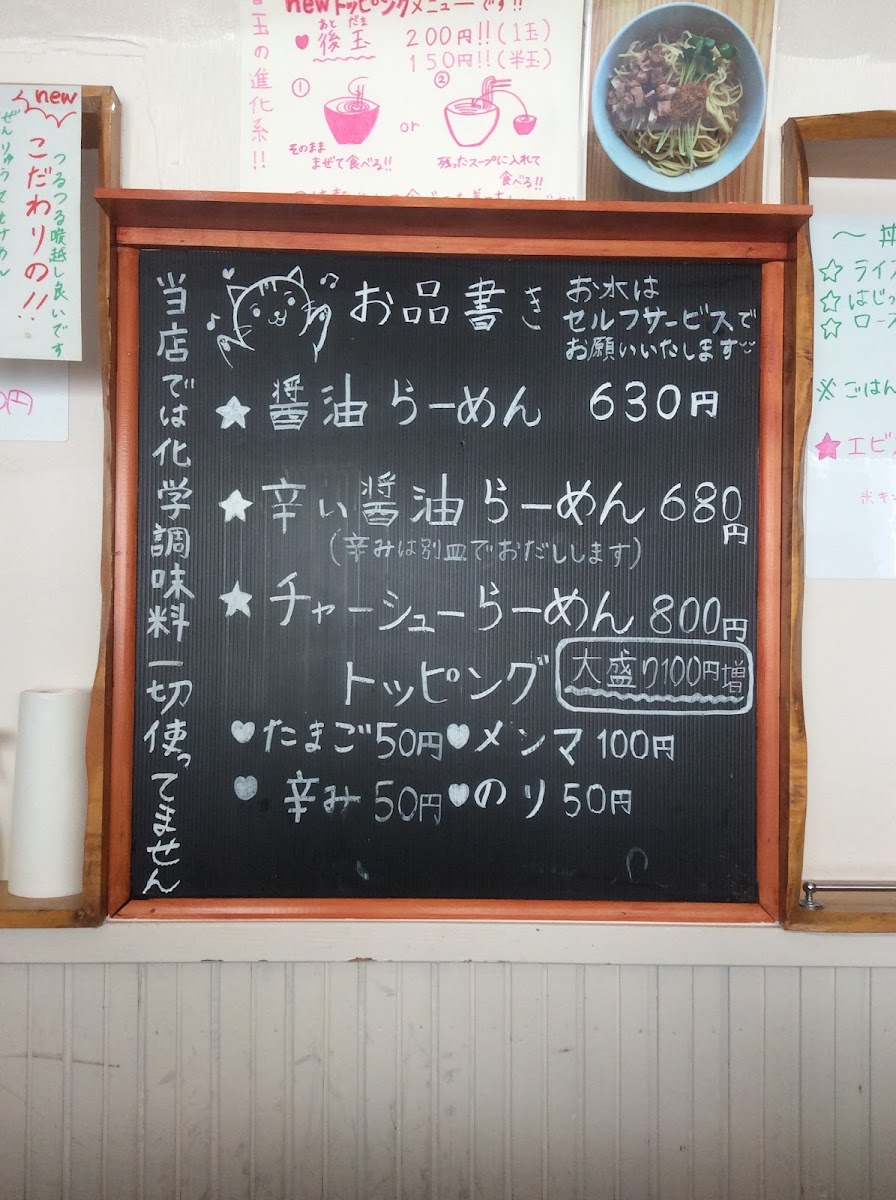 new
こだわりの!!
つるつる喉越し良いです
newトッピングメニューです!!
玉の進化系!!
あと だま
後玉 200円!!(1玉)
150円!!(半玉)
① ②
or
そのまま
まぜて食べる!!
残ったスープに入れて
食べる!!
当店では化学調味料一切使ってません
お品書き
お水は
セルフサービスで
お願いいたします
★醤油らーめん 630円
★辛い醤油らーめん 680円
(辛みは別皿でおだしします)
★チャーシューらーめん 800円
トッピング
大盛り100円増
♥たまご50円 ♥メンマ100円
♥辛み50円 ♥のり50円
～丼
☆ライ
☆はじ
☆ロー
※ごはん
★エビ
円